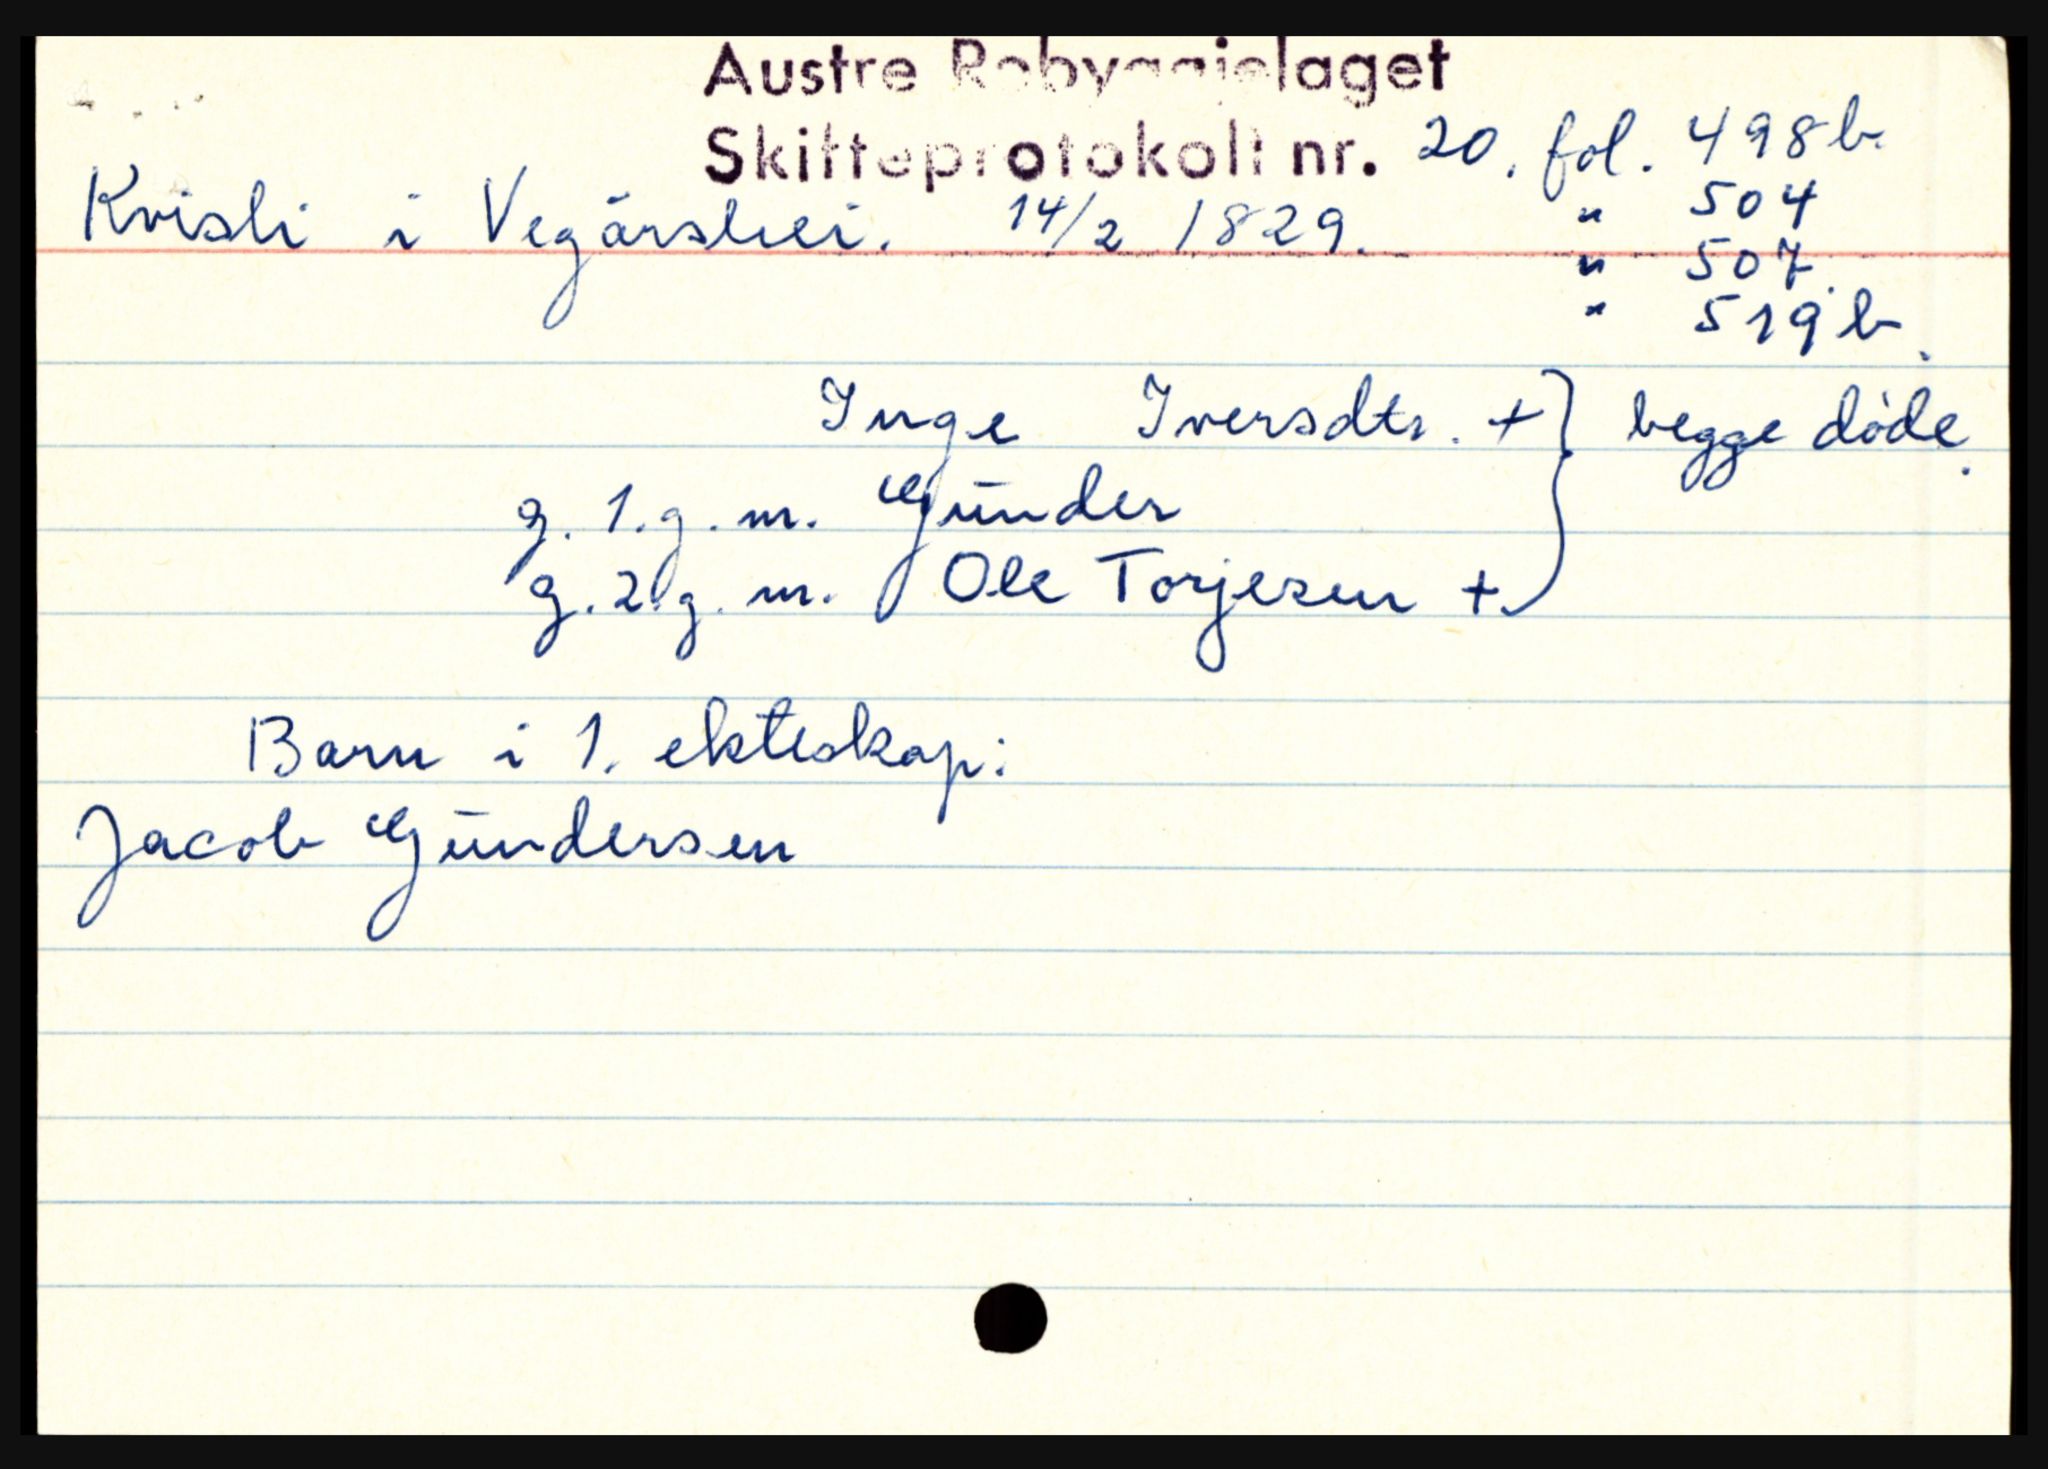 Austre Robyggjelaget
Skifteprotokoll nr. 20, fol. 498b.
Kvisli i Vegårshei. 14/2 1829. " 504
" 507.
" 519b.
Inge Iversdtr. + } begge døde.
g. 1. g. m. Gunder
g. 2. g. m. Ole Torjesen +
Barn i 1. ekteskap:
Jacob Gundersen